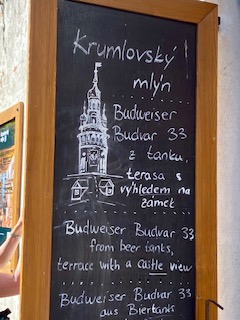 Krumlovský
mlýn
Budweiser
Budvar 33
z tanku,
terasa s
výhledem na
zámek
Budweiser Budvar 33
from beer tanks,
terrace with a castle view
Budweiser Budvar 33
aus Biertanks